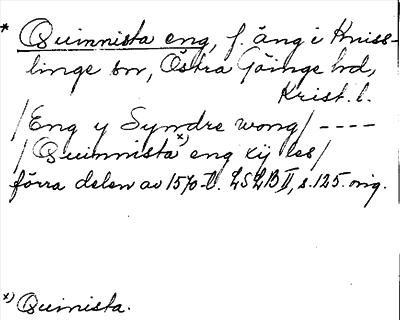 * Quinnista eng, f. äng i Kniss-
linge sn, Östra Göinge hd,
Krist. l.
/Eng y Syndre wong/ ----
/Quinnista x) eng xij les/
förra delen av 1570-t. LSLB II, s. 125. orig.
x) Quinista.